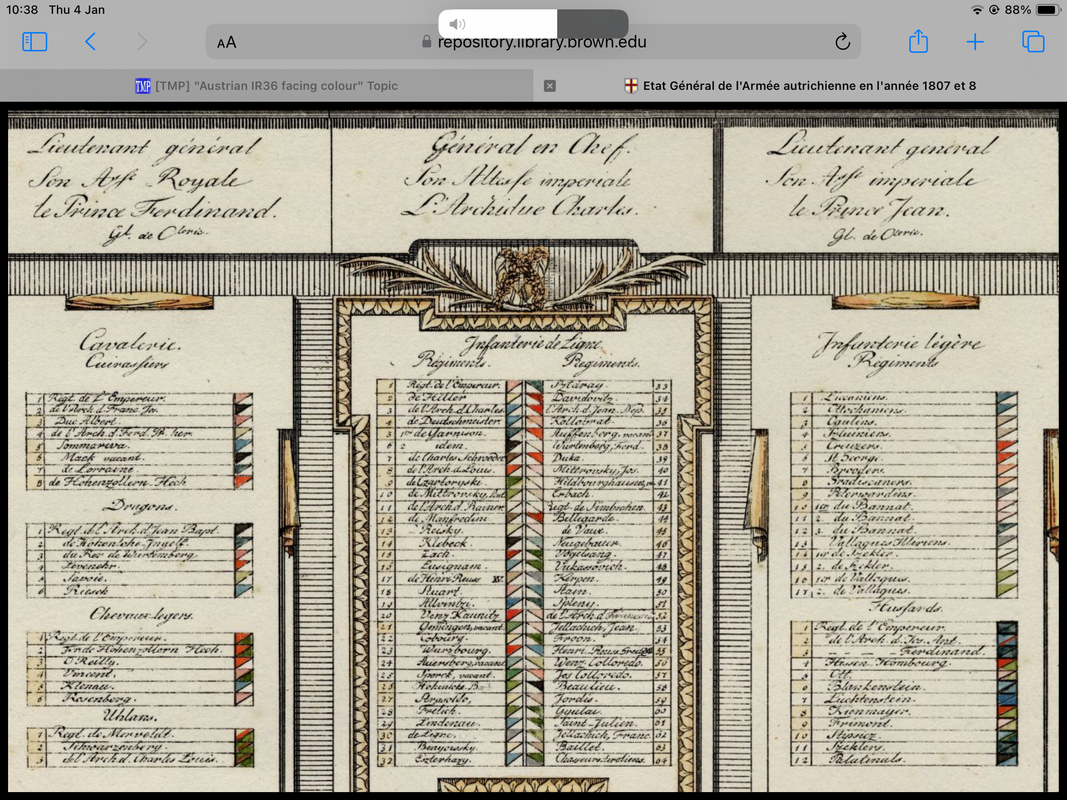 10:38 Thu 4 Jan
88%
AA
repository.library.brown.edu
TMP [TMP] "Austrian IR36 facing colour" Topic
Etat Général de l'Armée autrichienne en l'année 1807 et 8
Lieutenant général
Son Alsse Royale
le Prince Ferdinand.
Gl. de Clerie.
Général en Chef.
Son Altesse imperiale
L'Archiduc Charles.
Lieutenant general
Son Alsse imperiale
le Prince Jean.
Gl. de Clerie.
Cavalerie.
Cuirassiers
1 Regt. de L'Empereur.
2 de l'Arch d. Franc. Jos.
3 Duc Albert.
4 de l'Arch d. Ferd.
5 Sommariva.
6 Mack vacant.
7 de Lorraine.
8 de Hohenzollern. Hech
Dragons.
1 Regt. de l'Arch. d. Jean Bapt.
2 de Hohenlohe
3 du Roi de Würtemberg
4 Levenehr.
5 Savoie.
6 Riesch
Chevaux legers.
1 Regt. de l'Empereur.
2 Fer. de Hohenzollern Hech.
3 O'Reilly.
4 Vincent.
5 Klenau.
6 Rosenberg.
Uhlans.
1 Regt. de Merveldt.
2 Schwarzenberg.
3 de l'Arch. d. Charles Louis.
Infanterie de Ligne.
Régiments. Regiments.
1 Regt. de l'Empereur.
2 de Hiller
3 de l'Arch. d. Charles
4 de Deutschmeister
5 1er de Garnison.
6 2 idem
7 de Charles Schroeder
8 de l'Arch. d. Louis.
9 de Czartorysky
10 de Mittrovsky,
11 de l'Arch. d. Rainer
12 de Manfredini
13 Reisky
14 Klebeck
15 Zach.
16 Lusignam
17 de Henri Reuss XV.
18 Stuart.
19 Alvintzi
20 Venz Kaunitz
21 Gemingen, vacant
22 Cobourg.
23 Wurzbourg
24 Auersberg, vacant
25 Sporck, vacant.
26 Hohenlohe B.
27 Strasoldo,
28 Frelich
29 Lindenau
30 de Ligne.
31 Benyowsky
32 Esterhazy
Sztaray. 33
Davidovitz. 34
l'Arch. d. Jean Nep. 35
Kollovrat 36
Auffenberg, vacant 37
Wurtenberg, Ferd. 38
Duka. 39
Mittrowsky, Jos. 40
Hildbourghausen 41
Erbach. 42
Regt. de Simbschen 43
Bellegarde. 44
de Vaux 45
Neugebauer 46
Vogelsang. 47
Vukassovich. 48
Kerpen. 49
Stain. 50
Spleny. 51
de l'Arch. d. Francois 52
Jellachich, Jean. 53
Froon. 54
Henri. Reuss 55
Wenz Colloredo. 56
Jos Colloredo. 57
Beaulieu. 58
Jordis. 59
Gyulai 60
Saint-Julien. 61
Jellachich, Franc. 62
Baillet. 63
Chasseurs tiroliens. 64
Infanterie légère
Regiments.
1 Liccaniens.
2 Ottochaniens
3 Ogulins.
4 Szluiniens
5 Creuzers.
6 St. Georgi.
7 Brooders.
8 Gradiscaners.
9 Peterwardins.
10 1er du Bannat.
11 2. du Bannat.
12 du Bannat
13 Vallaques Illiriens.
14 1er de Szekler.
15 2. de Szekler.
16 1er de Vallaques.
17 2. de Vallaques.
Husards.
1 Regt. de l'Empereur.
2 de l'Arch. d. Jos. Ant.
3 Ferdinand.
4 Hessen Hombourg
5 Ott.
6 Blankenstein.
7 Liechtenstein.
8 Kienmayer.
9 Frimont.
10 Stipsicz.
11 Szeklers.
12 Palatinals.